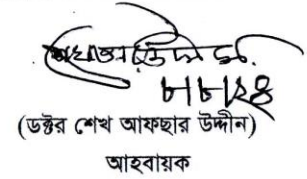 ৮/৮/২৪
(ডক্টর শেখ আফছার উদ্দীন)
আহবায়ক